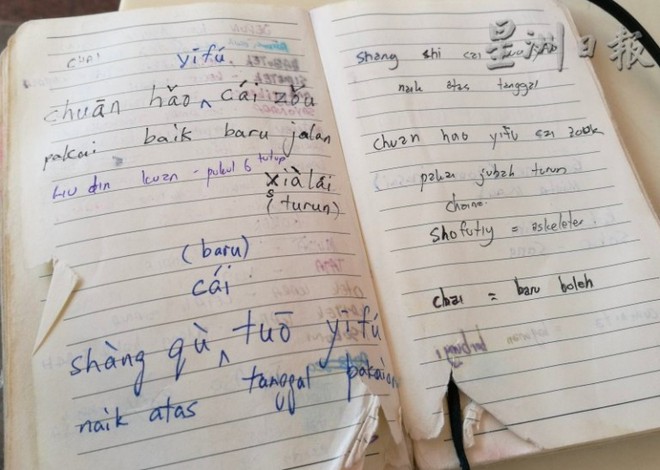 yīfú
chuān hǎo ^ cái zǒu
pakai baik baru jalan
Liu din kuan - pukul 6 tutup
xià lái
s
(turun)
(baru)
cái
shàng qù ^ tuō yīfú
naik atas tanggal pakaian
星洲日報
shang shi cai
naik atas tanggal
chuan hao yifu cai
pakai jubah turun
shofutiy = eskeleter
chai = baru boleh